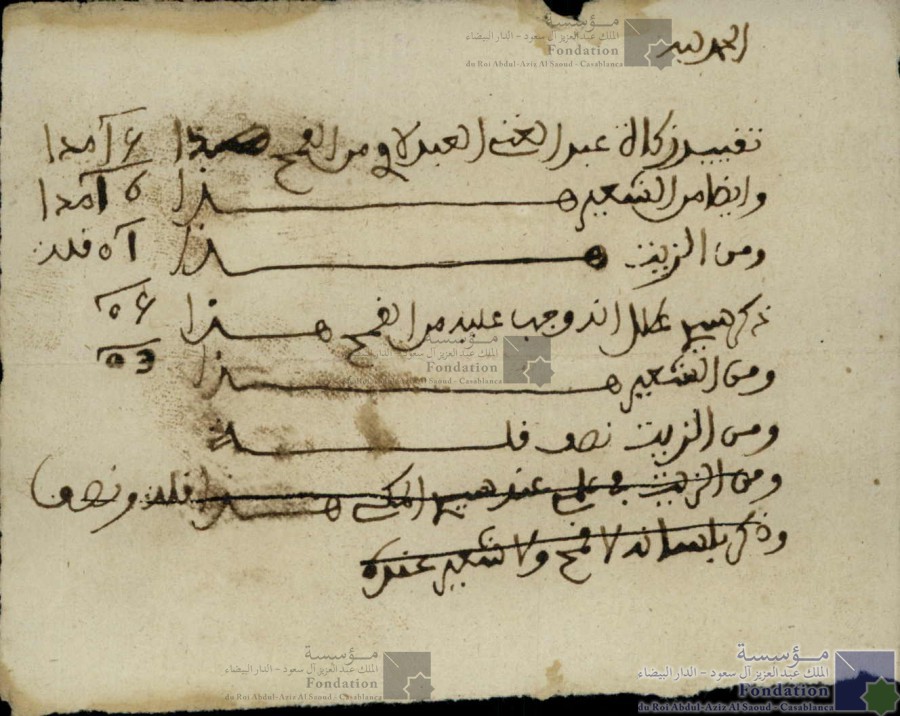 الحمد لله
تقييد زكاة عبد الغني العبدلاوي من القمح هذا 6 أمدا
وايظا من الشعير هذا 6 أمدا
ومن الزيت هذا قلة
ذكر انه وجب عليه من القمح هذا
ومن الشعير هذا
ومن الزيت نصف قلة
ومن الزيت في علي عند المكي هذا قلة ونصف
وذكر بلسانه لا قمح ولا شعير عنده
مؤسسة
الملك عبد العزيز آل سعود - الدار البيضاء
Fondation
du Roi Abdul-Aziz Al Saoud - Casablanca
مؤسسة
الملك عبد العزيز آل سعود - الدار البيضاء
Fondation
du Roi Abdul-Aziz Al Saoud - Casablanca
مؤسسة
الملك عبد العزيز آل سعود - الدار البيضاء
Fondation
du Roi Abdul-Aziz Al Saoud - Casablanca
مؤسسة
الملك عبد العزيز آل سعود - الدار البيضاء
Fondation
du Roi Abdul-Aziz Al Saoud - Casablanca